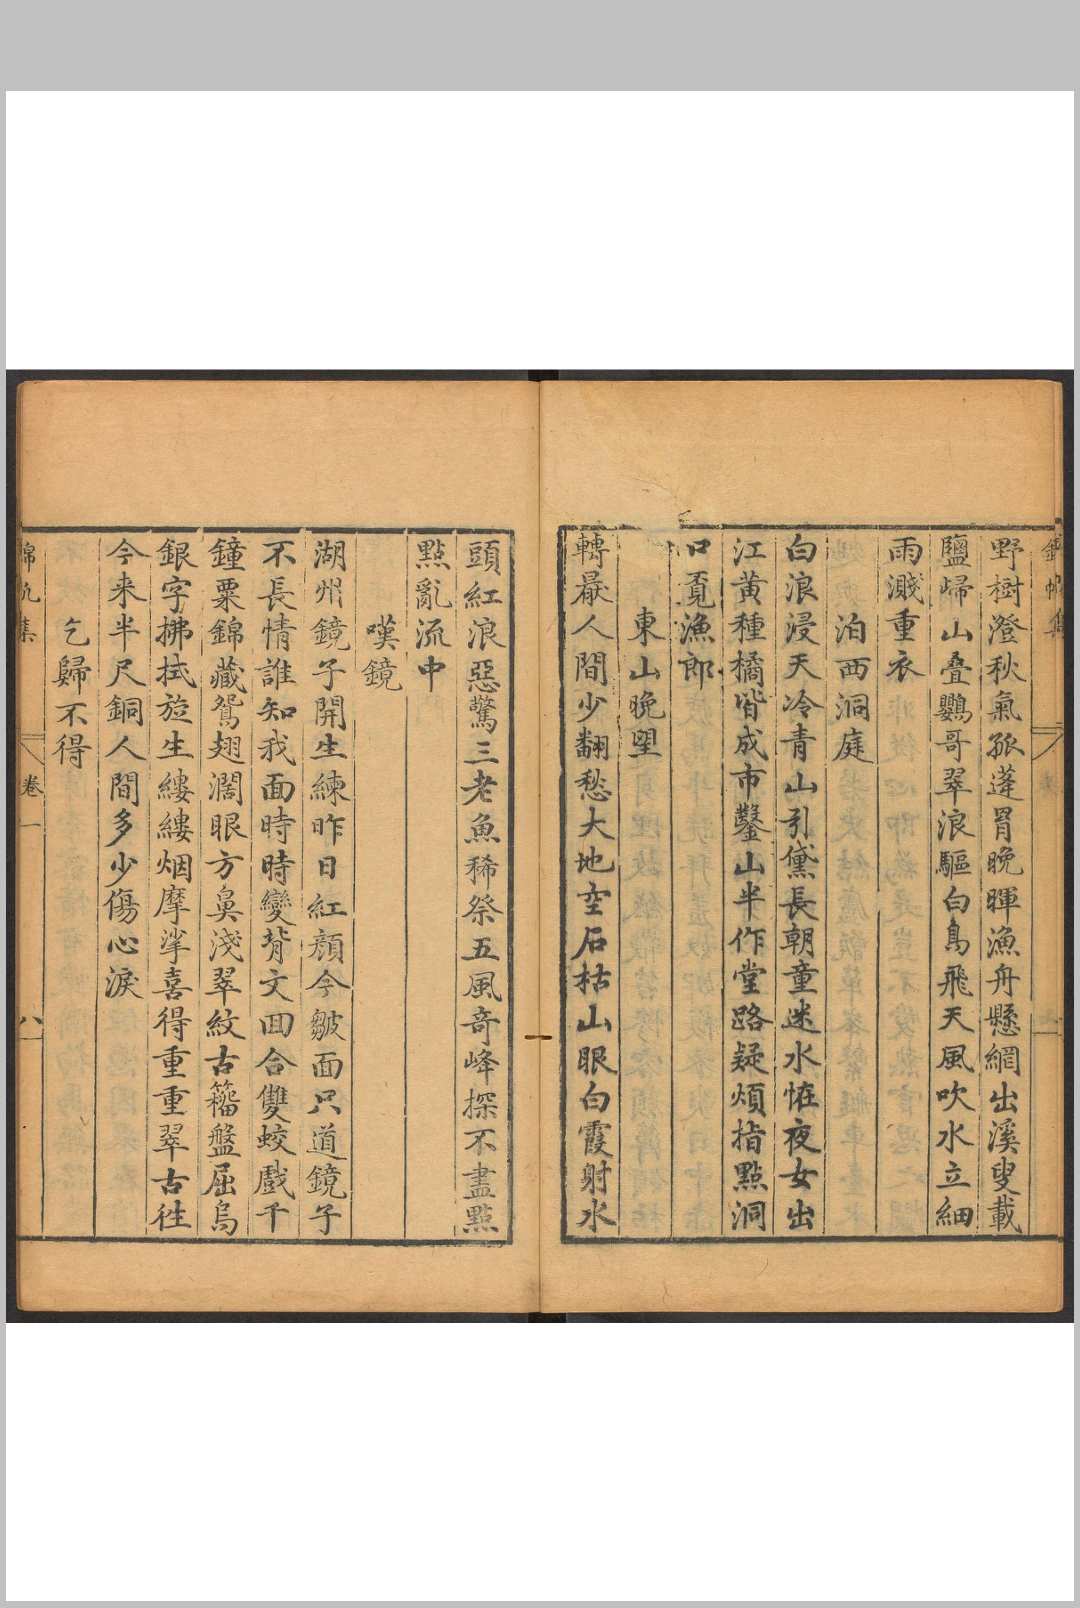 野樹澄秋氣孤蓬冐晚暉漁舟懸網出溪叟載
鹽歸山叠鸚哥翠浪驅白鳥飛天風吹水立細
雨濺重衣
泊西洞庭
白浪浸天冷青山引黛長朝童迷水怪夜女出
江黃種橘皆成市鑿山半作堂路疑煩指點洞
口覔漁郎
東山晚朢
轉嚴人間少翻愁大地空石枯山眼白霞射水
頭紅浪惡驚三老魚稀祭五風奇峰探不盡點
點亂流中
嘆鏡
湖州鏡子開生練昨日紅顏今皺面只道鏡子
不長情誰知我面時時變背文回合雙蛟戲千
鐘粟錦藏鴛翅濶眼方鼻淺翠紋古籕盤屈鳥
銀字拂拭旋生縷縷烟摩挲喜得重重翠古徃
今来半尺銅人間多少傷心淚
乞歸不得
錦帆集
卷一
八